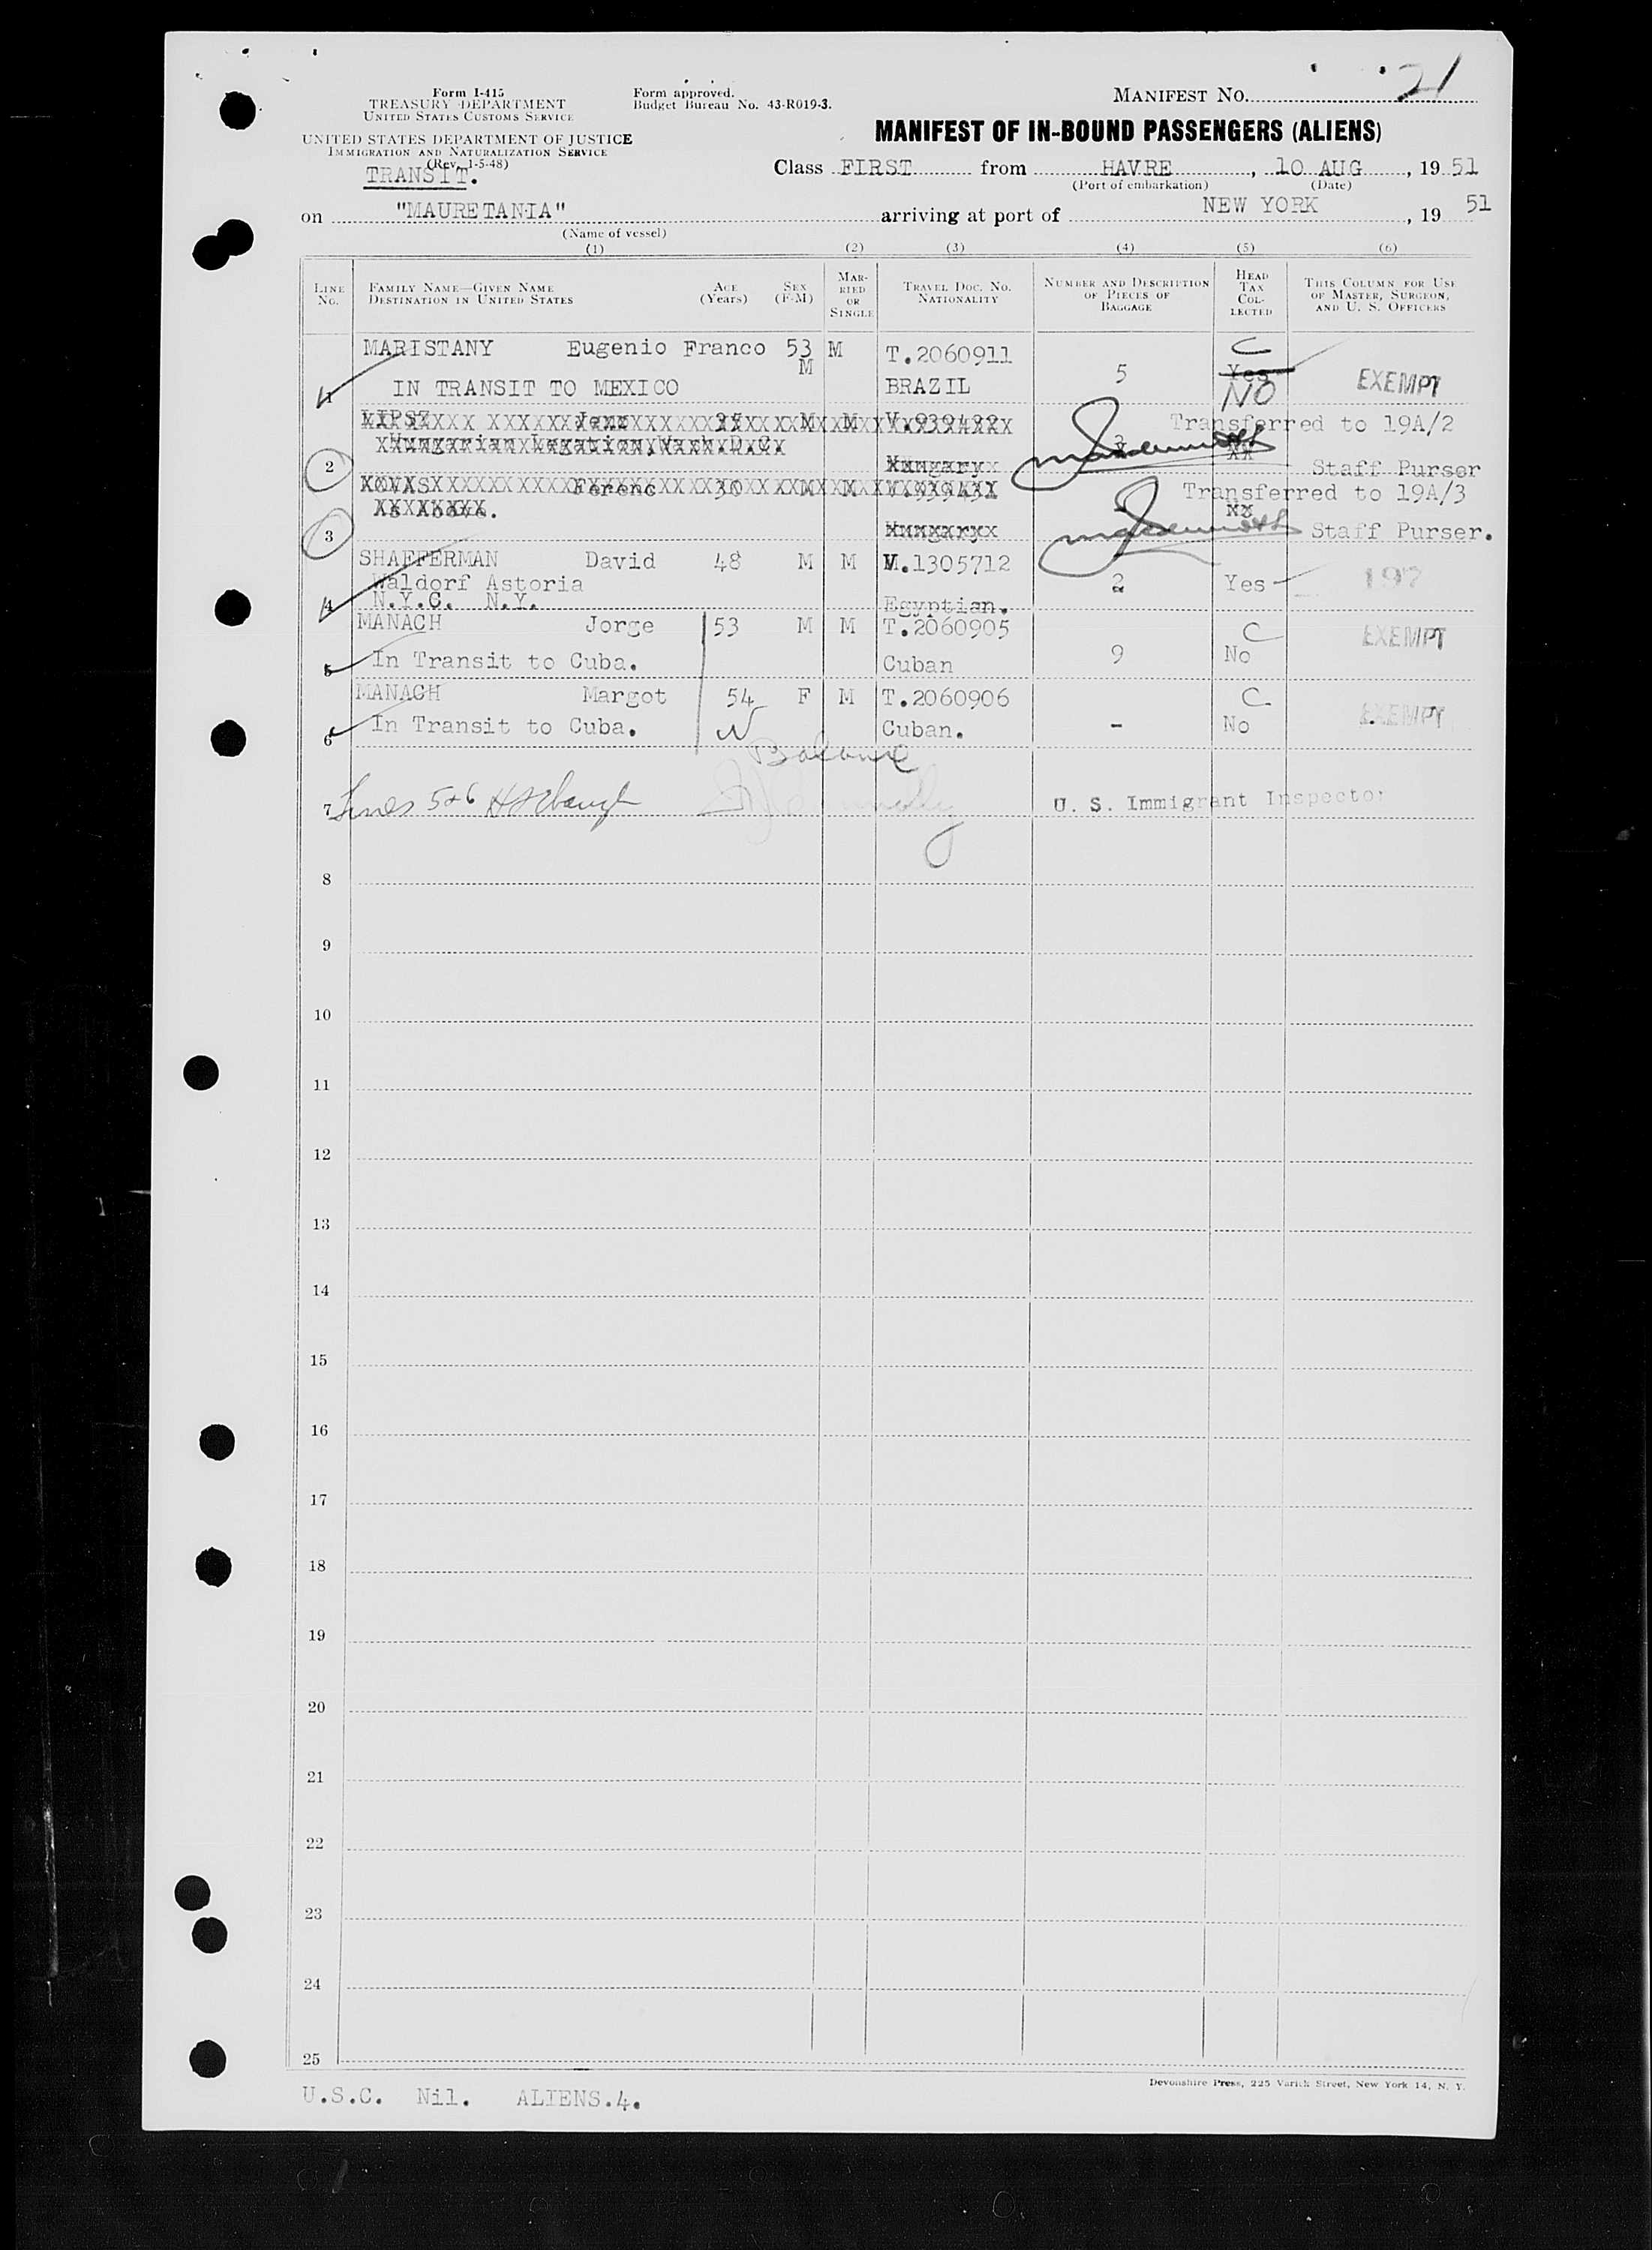 21
Form I-415
TREASURY DEPARTMENT
UNITED STATES CUSTOMS SERVICE
Form approved.
Budget Bureau No. 43-R019-3.
MANIFEST NO.
UNITED STATES DEPARTMENT OF JUSTICE
IMMIGRATION AND NATURALIZATION SERVICE
(Rev. 1-5-48)
MANIFEST OF IN-BOUND PASSENGERS (ALIENS)
TRANSIT.
Class FIRST from HAVRE, 10 AUG, 19 51
(Port of embarkation) (Date)
on "MAURETANIA" arriving at port of NEW YORK, 19 51
(Name of vessel)
(1) (2) (3) (4) (5) (6)
LINE NO.
FAMILY NAME—GIVEN NAME
DESTINATION IN UNITED STATES
AGE (Years)
SEX (F-M)
MARRIED OR SINGLE
TRAVEL DOC. NO.
NATIONALITY
NUMBER AND DESCRIPTION OF PIECES OF BAGGAGE
HEAD TAX COLLECTED
THIS COLUMN FOR USE OF MASTER, SURGEON, AND U. S. OFFICERS
MARISTANY Eugenio Franco 53 M M T.2060911 C
1 IN TRANSIT TO MEXICO BRAZIL 5 Yes NO EXEMPT
LIPSZ Jeno M M V.939422 Transferred to 19A/2
Hungarian Legation, Wash. D.C.
2 Hungary Staff Purser
KOVAS Ferenc 30 M M V.939431 Transferred to 19A/3
As Above.
3 Hungary Staff Purser.
SHAFFERMAN David 48 M M V.1305712
Waldorf Astoria 2 Yes 197
4 N.Y.C. N.Y. Egyptian.
MANACH Jorge 53 M M T.2060905 C EXEMPT
5 In Transit to Cuba. Cuban 9 No
MANACH Margot 54 F M T.2060906 C
6 In Transit to Cuba. Cuban. - No EXEMPT
Balance
7 Lines 5+6 U. S. Immigrant Inspector
8
9
10
11
12
13
14
15
16
17
18
19
20
21
22
23
24
25
Devonshire Press, 225 Varick Street, New York 14, N. Y.
U.S.C. Nil. ALIENS.4.